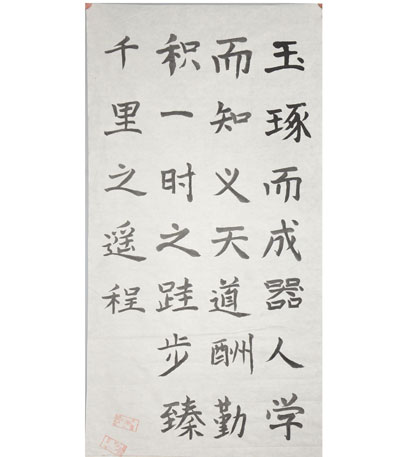 玉琢而成器人学
而知义天道酬勤
积一时之跬步臻
千里之遥程